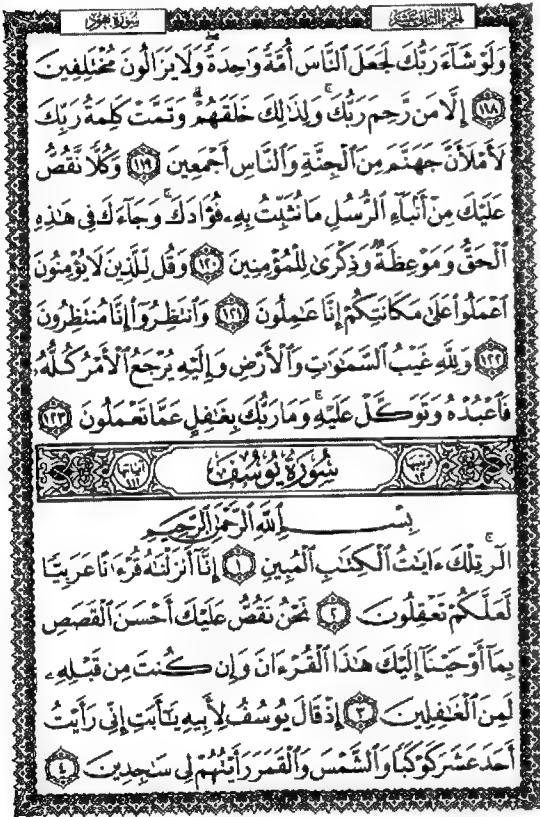 الجزء الثاني عشر
سورة هود
وَلَوْ شَآءَ رَبُّكَ لَجَعَلَ ٱلنَّاسَ أُمَّةً وَٰحِدَةً ۖ وَلَا يَزَالُونَ مُخْتَلِفِينَ
١١٨ إِلَّا مَن رَّحِمَ رَبُّكَ ۚ وَلِذَٰلِكَ خَلَقَهُمْ ۗ وَتَمَّتْ كَلِمَةُ رَبِّكَ
لَأَمْلَأَنَّ جَهَنَّمَ مِنَ ٱلْجِنَّةِ وَٱلنَّاسِ أَجْمَعِينَ ١١٩ وَكُلًّا نَّقُصُّ
عَلَيْكَ مِنْ أَنۢبَآءِ ٱلرُّسُلِ مَا نُثَبِّتُ بِهِۦ فُؤَادَكَ ۚ وَجَآءَكَ فِى هَٰذِهِ
ٱلْحَقُّ وَمَوْعِظَةٌ وَذِكْرَىٰ لِلْمُؤْمِنِينَ ١٢٠ وَقُل لِّلَّذِينَ لَا يُؤْمِنُونَ
ٱعْمَلُوا۟ عَلَىٰ مَكَانَتِكُمْ إِنَّا عَٰمِلُونَ ١٢١ وَٱنتَظِرُوٓا۟ إِنَّا مُنتَظِرُونَ
١٢٢ وَلِلَّهِ غَيْبُ ٱلسَّمَٰوَٰتِ وَٱلْأَرْضِ وَإِلَيْهِ يُرْجَعُ ٱلْأَمْرُ كُلُّهُۥ
فَٱعْبُدْهُ وَتَوَكَّلْ عَلَيْهِ ۚ وَمَا رَبُّكَ بِغَٰفِلٍ عَمَّا تَعْمَلُونَ ١٢٣
ترتيبها ١٢ سُورَةُ يُوسُفَ آياتها ١١١
بِسْمِ ٱللَّهِ ٱلرَّحْمَٰنِ ٱلرَّحِيمِ
الٓر ۚ تِلْكَ ءَايَٰتُ ٱلْكِتَٰبِ ٱلْمُبِينِ ١ إِنَّآ أَنزَلْنَٰهُ قُرْءَٰنًا عَرَبِيًّا
لَّعَلَّكُمْ تَعْقِلُونَ ٢ نَحْنُ نَقُصُّ عَلَيْكَ أَحْسَنَ ٱلْقَصَصِ
بِمَآ أَوْحَيْنَآ إِلَيْكَ هَٰذَا ٱلْقُرْءَانَ وَإِن كُنتَ مِن قَبْلِهِۦ
لَمِنَ ٱلْغَٰفِلِينَ ٣ إِذْ قَالَ يُوسُفُ لِأَبِيهِ يَٰٓأَبَتِ إِنِّى رَأَيْتُ
أَحَدَ عَشَرَ كَوْكَبًا وَٱلشَّمْسَ وَٱلْقَمَرَ رَأَيْتُهُمْ لِى سَٰجِدِينَ ٤